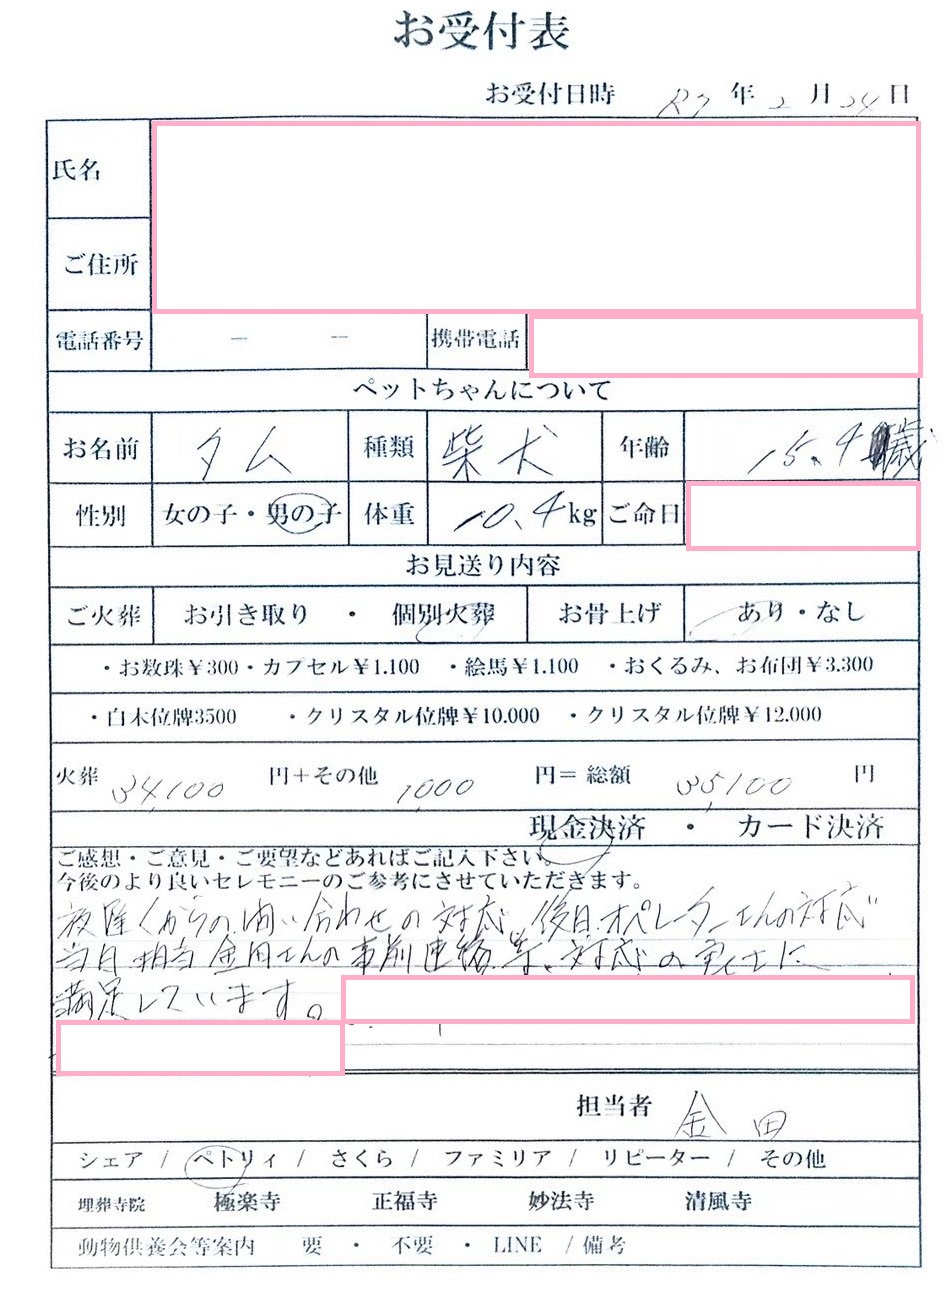 お受付表
お受付日時 R7 年 2 月 24 日
氏名
ご住所
電話番号 － － 携帯電話
ペットちゃんについて
お名前 タム 種類 柴犬 年齢 15.4 歳
性別 女の子・男の子 体重 10.4 kg ご命日
お見送り内容
ご火葬 お引き取り ・ 個別火葬 お骨上げ あり・なし
・お数珠￥300・カプセル￥1.100 ・絵馬￥1.100 ・おくるみ、お布団￥3.300
・白木位牌3500 ・クリスタル位牌￥10.000 ・クリスタル位牌￥12.000
火葬 34,100 円＋その他 1,000 円＝ 総額 35,100 円
現金決済 ・ カード決済
ご感想・ご意見・ご要望などあればご記入下さい。
今後のより良いセレモニーのご参考にさせていただきます。
夜遅くからの問い合わせの対応、後日オペレーターさんの対応
当日担当金田さんの事前連絡等、対応の
満足しています。
担当者 金田
シェア / ペトリィ / さくら / ファミリア / リピーター / その他
埋葬寺院 極楽寺 正福寺 妙法寺 清風寺
動物供養会等案内 要 ・ 不要 ・ LINE / 備考